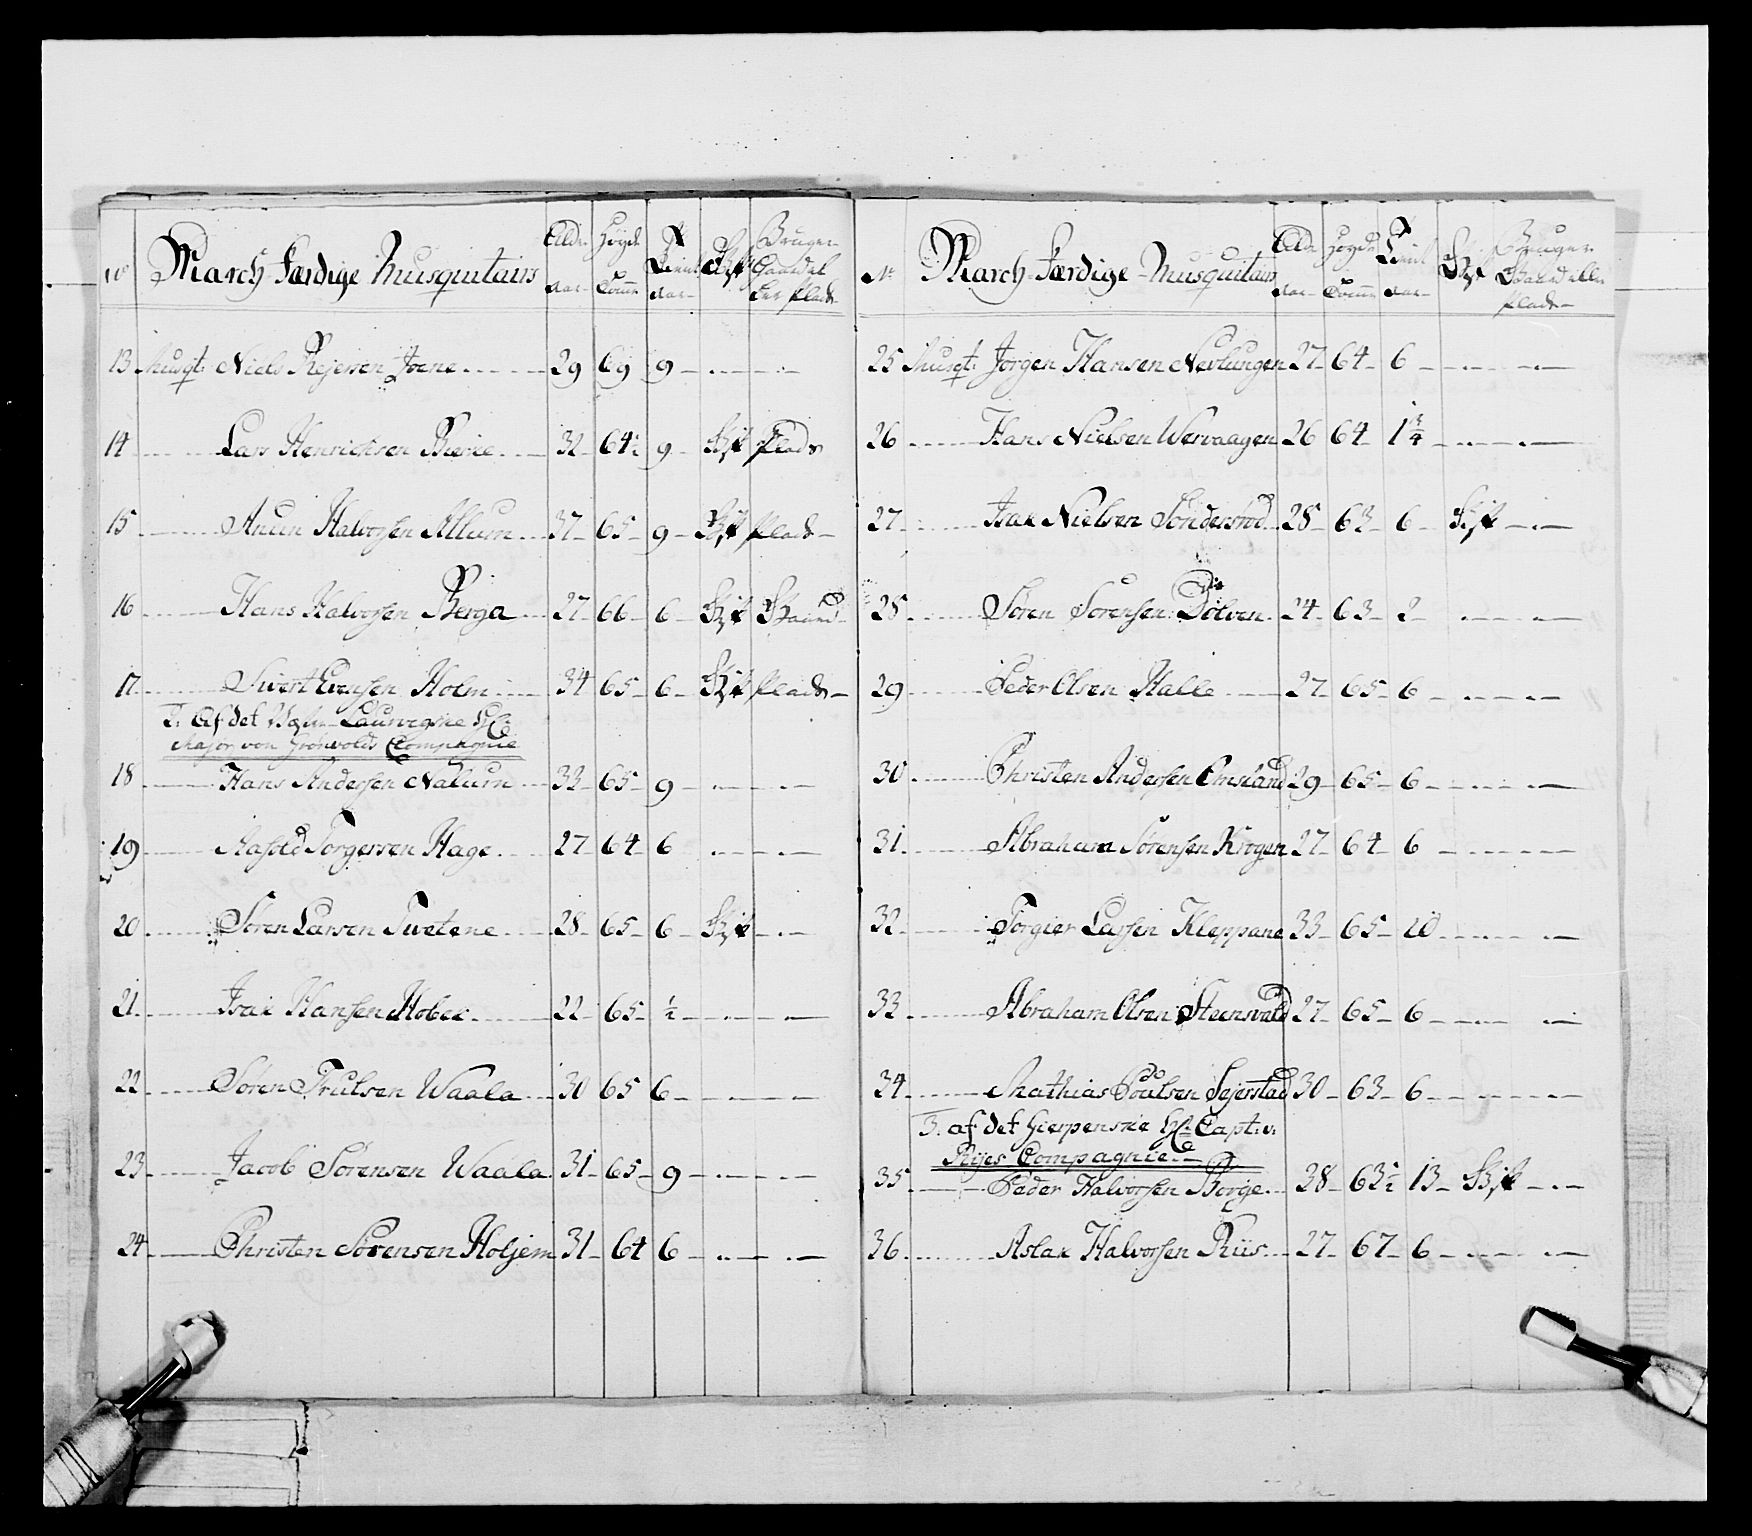 No March-Færdige Musquitairs Alder aar Høyde Tomme Tient aar Gift Bruger Gaard eller Plads
13 Musqt: Niels Rejersen Joene 29 69 9
14 Lars Henrichsen Bierke 32 64½ 9 Gift Plads
15 Anun Halvorsen Allum 37 65 9 Gift Plads
16 Hans Halvorsen Berga 27 66 6 Gift Gaard
17 Sivert Evensen Holm 34 65 6 Gift Plads
2: Af det Laurvigske
Major von Grönvolds Compagnie
18 Hans Andersen Nalum 33 65 9
19 Torgersen Hage 27 64 6
20 Sören Larsen Tvetene 28 65 6 Gift
21 Isak Hansen Hobek 22 65 ½
22 Sören Trulsen Waala 30 65 6
23 Jacob Sörensen Waala 31 65 9
24 Christen Sörensen Holjem 31 64 6
No March-Færdige Musquitairs Alder aar Høyde Tomme Tient aar Gift Bruger Gaard eller Plads
25 Musqt: Jörgen Hansen Nevlungen 27 64 6
26 Hans Nielsen Wervaagen 26 64 1¾
27 Isak Nielsen Sönderröd 28 63 6 Gift
28 Sören Sörensen Dölven 24 63 2
29 Peder Olsen Halle 27 65 6
30 Christen Andersen Omsland 29 65 6
31 Abraham Sörensen Krogen 27 64 6
32 Torgier Larsen Kleppane 33 65 10
33 Abraham Olsen Steensvald 27 65 6
34 Mathias Poulsen Sejerstad 30 63 6
3. af det Gierpenske Capt: v:
Rijes Compagnie
35 Peder Halvorsen Borge 28 63½ 13 Gift
36 Aslak Halvorsen Riis 27 67 6